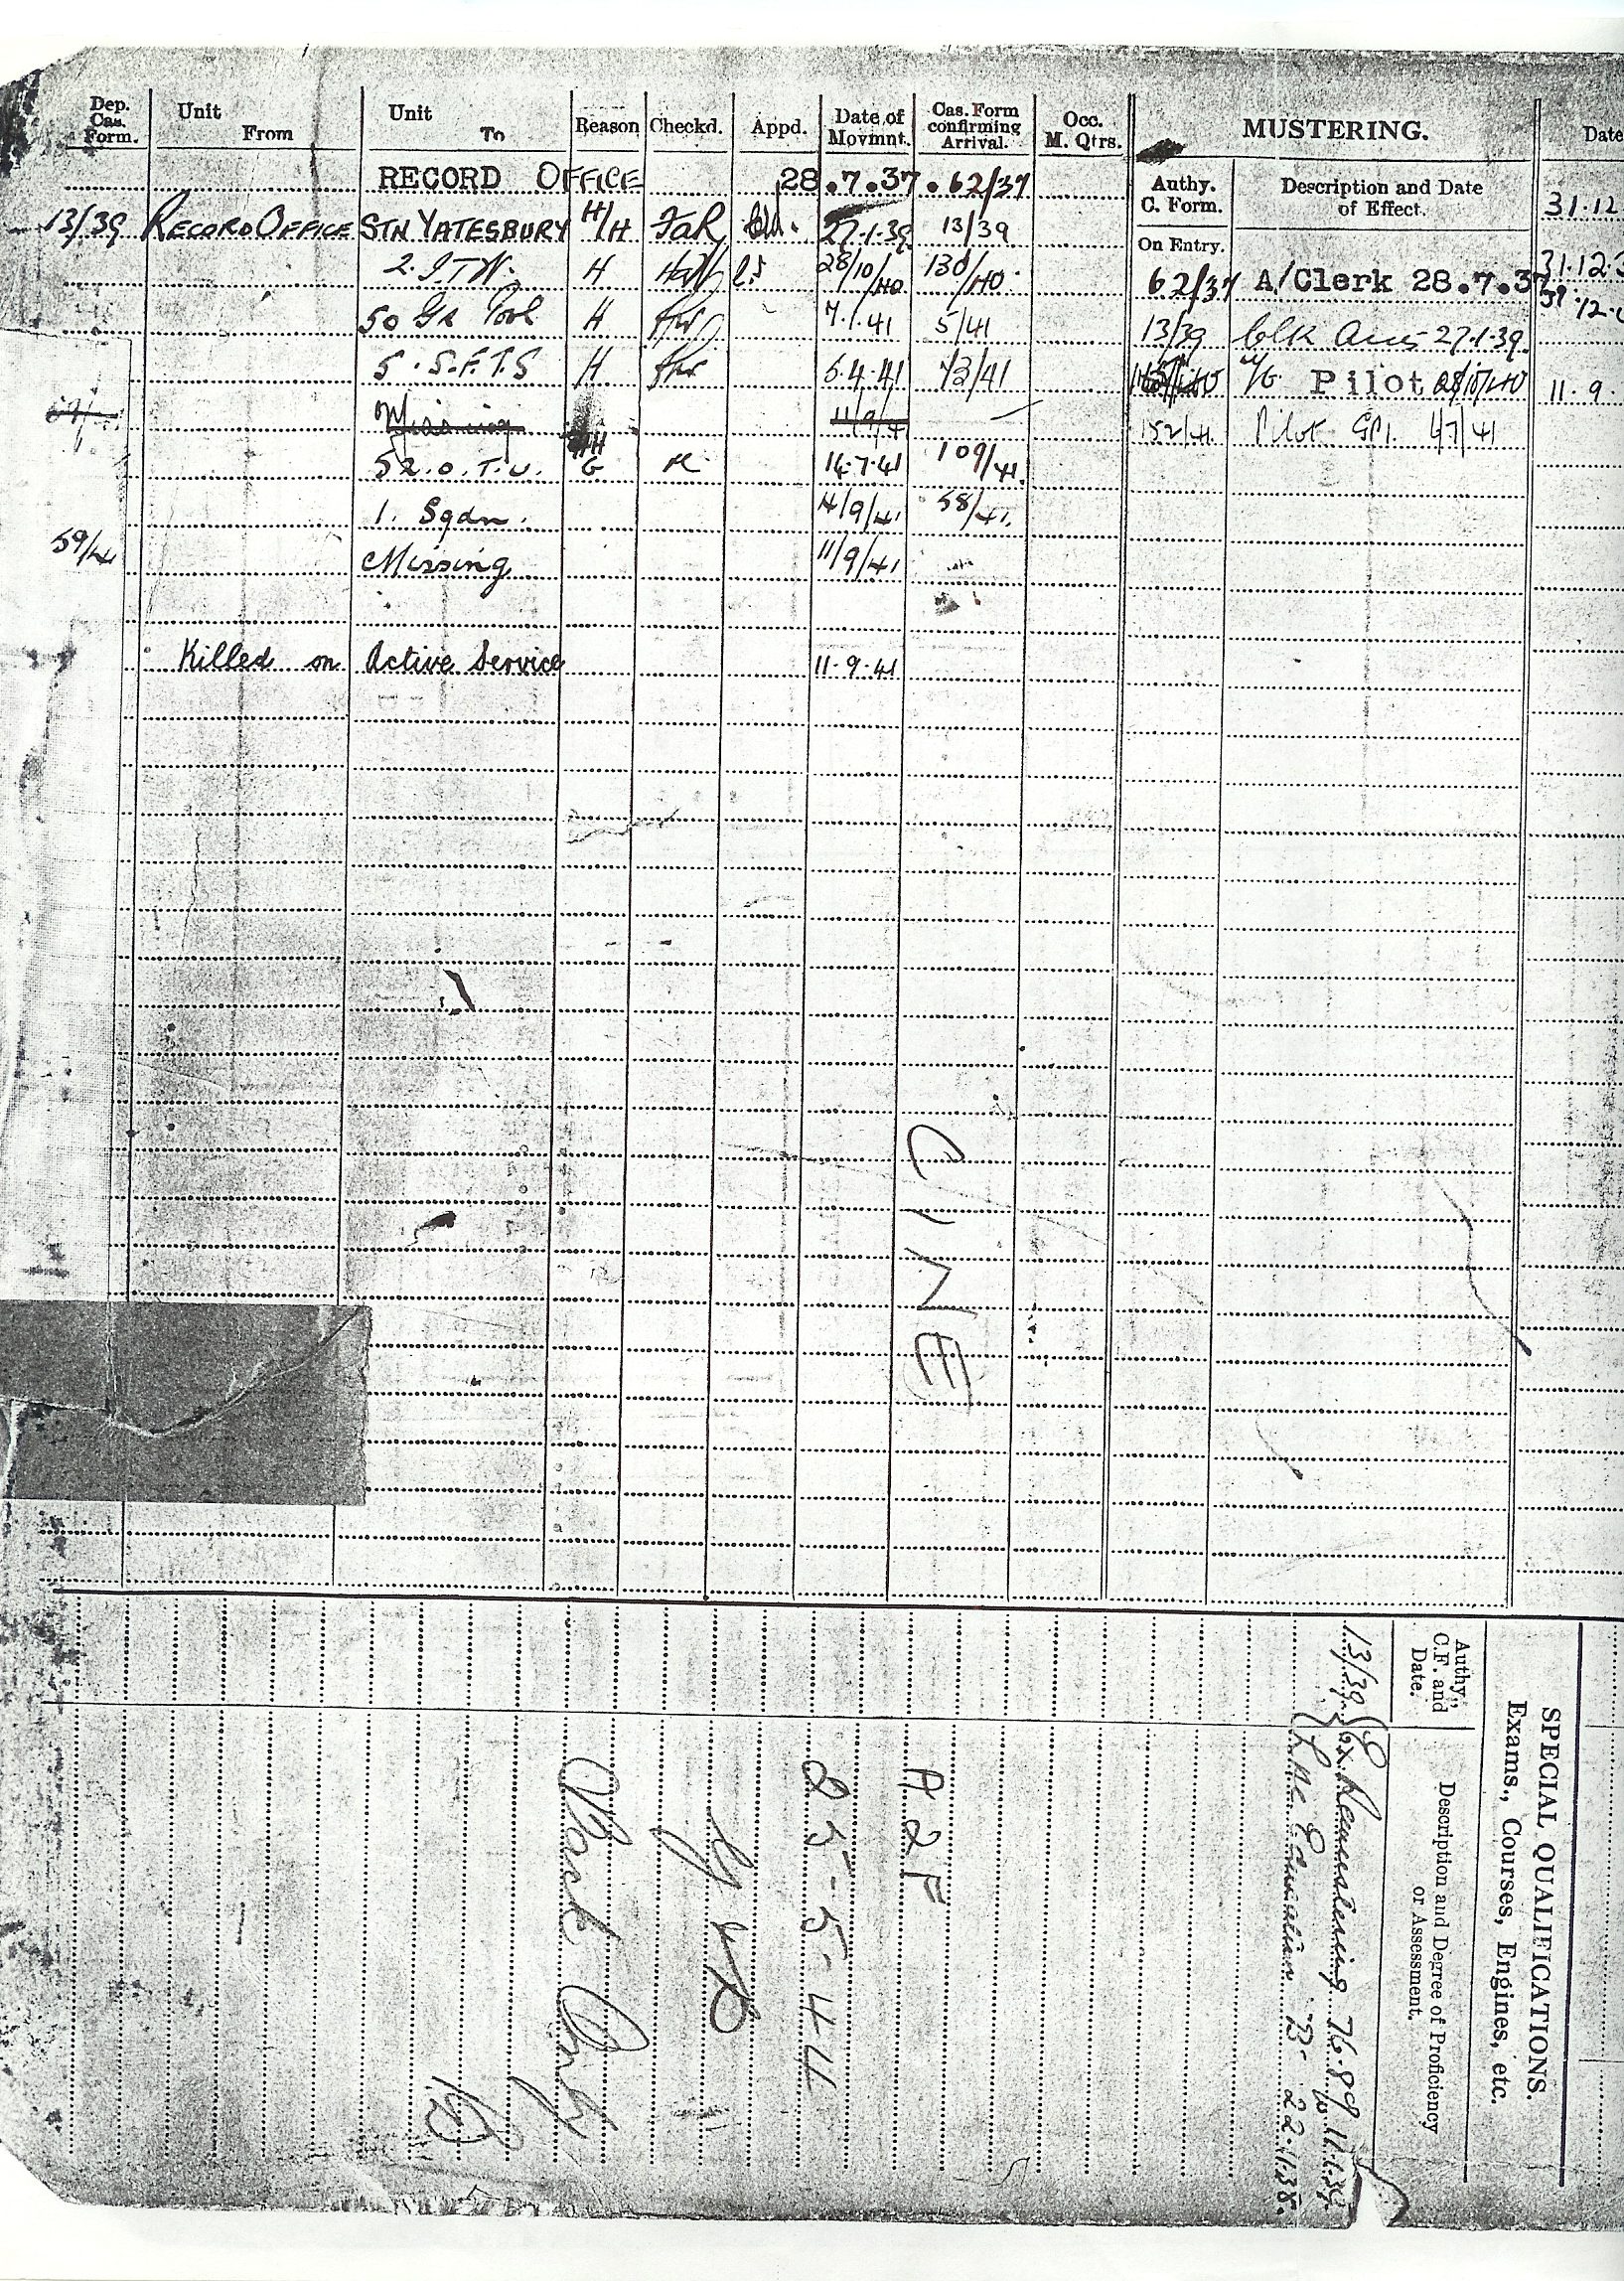 Dep. Cas. Form. Unit From Unit To Reason Checkd. Appd. Date of Movmnt. Cas. Form confirming Arrival. Occ. M. Qtrs.
RECORD OFFICE 28.7.37. 62/37
13/39 RECORD OFFICE STN YATESBURY H/H FaR 27.1.39 13/39
2. I.T.W. H 28/10/40 130/40.
50 Gp Pool H 7.1.41 5/41
5. S.F.T.S H 5.4.41 43/41
Missing 11/9/4
52. O. T. U. G 14.7.41 109/41.
1. Sqdn. 4/9/41 58/41.
59/41 Missing 11/9/41
Killed on Active Service 11.9.41
CINE
MUSTERING.
Authy. C. Form. Description and Date of Effect.
On Entry.
62/37 A/Clerk 28.7.37
13/39 Clk Acc 27.1.39.
Pilot 28/10/40
152/41. Pilot GP1. 4/7/41
Date
31.12
31.12.3
11.9
SPECIAL QUALIFICATIONS.
Exams., Courses, Engines, etc.
Authy., C.F. and Date. Description and Degree of Proficiency or Assessment.
13/39 Ex. Remustering 76.8% 11.1.39.
Education B 22.1.38.
A 2 F
25-5-44